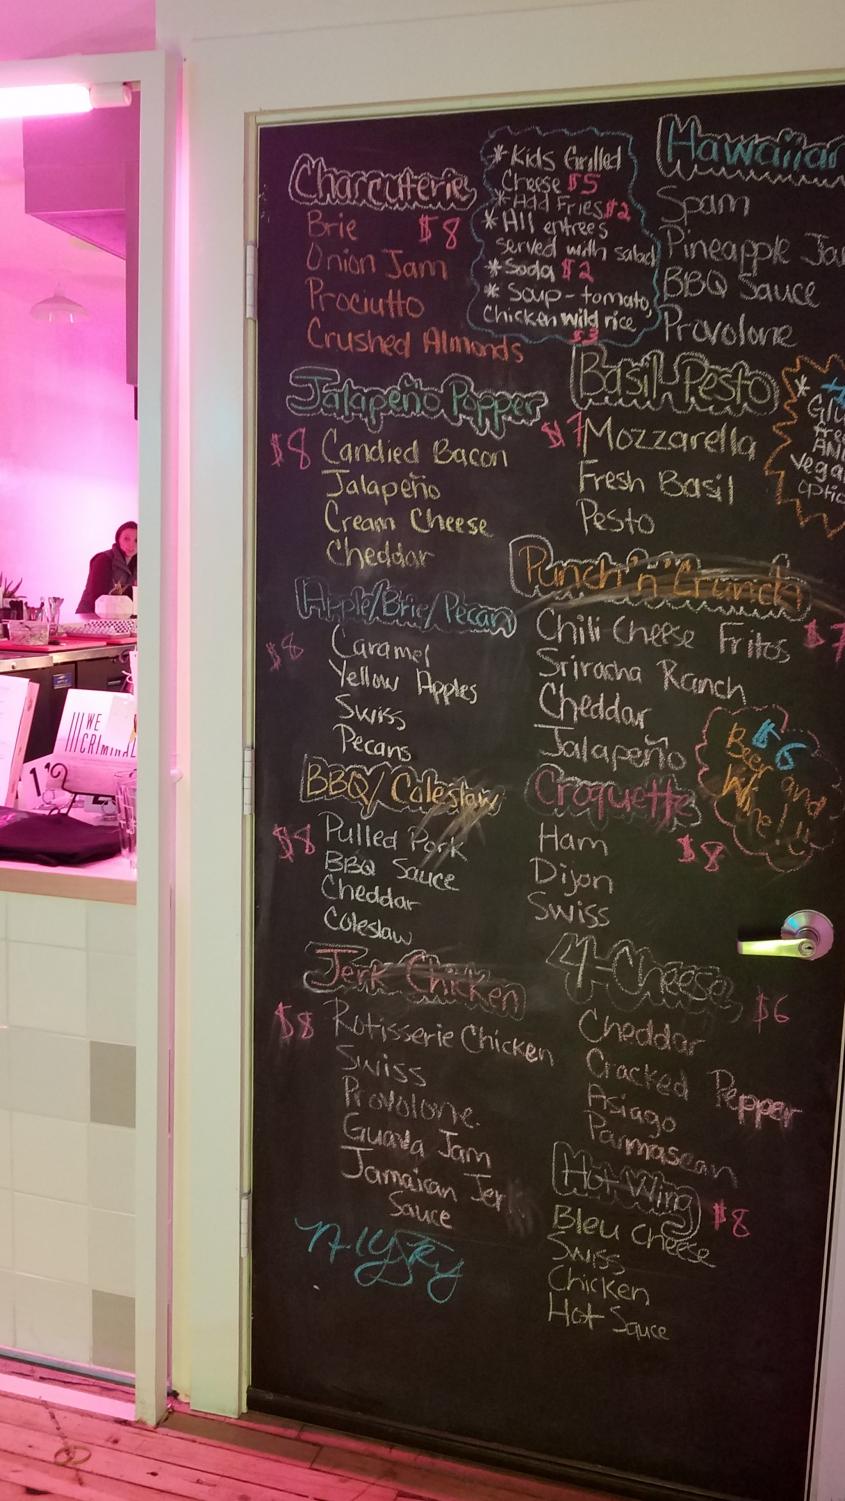 Charcuterie
Brie $8
Onion Jam
Prociutto
Crushed Almonds
Jalapeño Popper
$8 Candied Bacon
Jalapeño
Cream Cheese
Cheddar
Apple/Brie/Pecan
$8 Caramel
Yellow Apples
Swiss
Pecans
BBQ/Coleslaw
$8 Pulled Pork
BBQ Sauce
Cheddar
Coleslaw
Jerk Chicken
$8 Rotisserie Chicken
Swiss
Provolone
Guava Jam
Jamaican Jerk
Sauce
* Kids Grilled
Cheese $5
* Add Fries $2
* All entrees
served with salad
* Soda $2
* Soup - tomato,
Chicken wild rice
$3
Hawaiian
Spam
Pineapple Ja
BBQ Sauce
Provolone
Basil Pesto
$7 Mozzarella
Fresh Basil
Pesto
*
Glu
free
AN
vega
optio
Punch 'n' Crunch
Chili Cheese Fritos $7
Sriracha Ranch
Cheddar
Jalapeño
$6
Beer and
Wine!!
Croquette
$8
Ham
Dijon
Swiss
4-Cheese
$6
Cheddar
Cracked Pepper
Asiago
Parmascan
Hot Wing $8
Bleu Cheese
Swiss
Chicken
Hot Sauce
WE
CRIMINAL